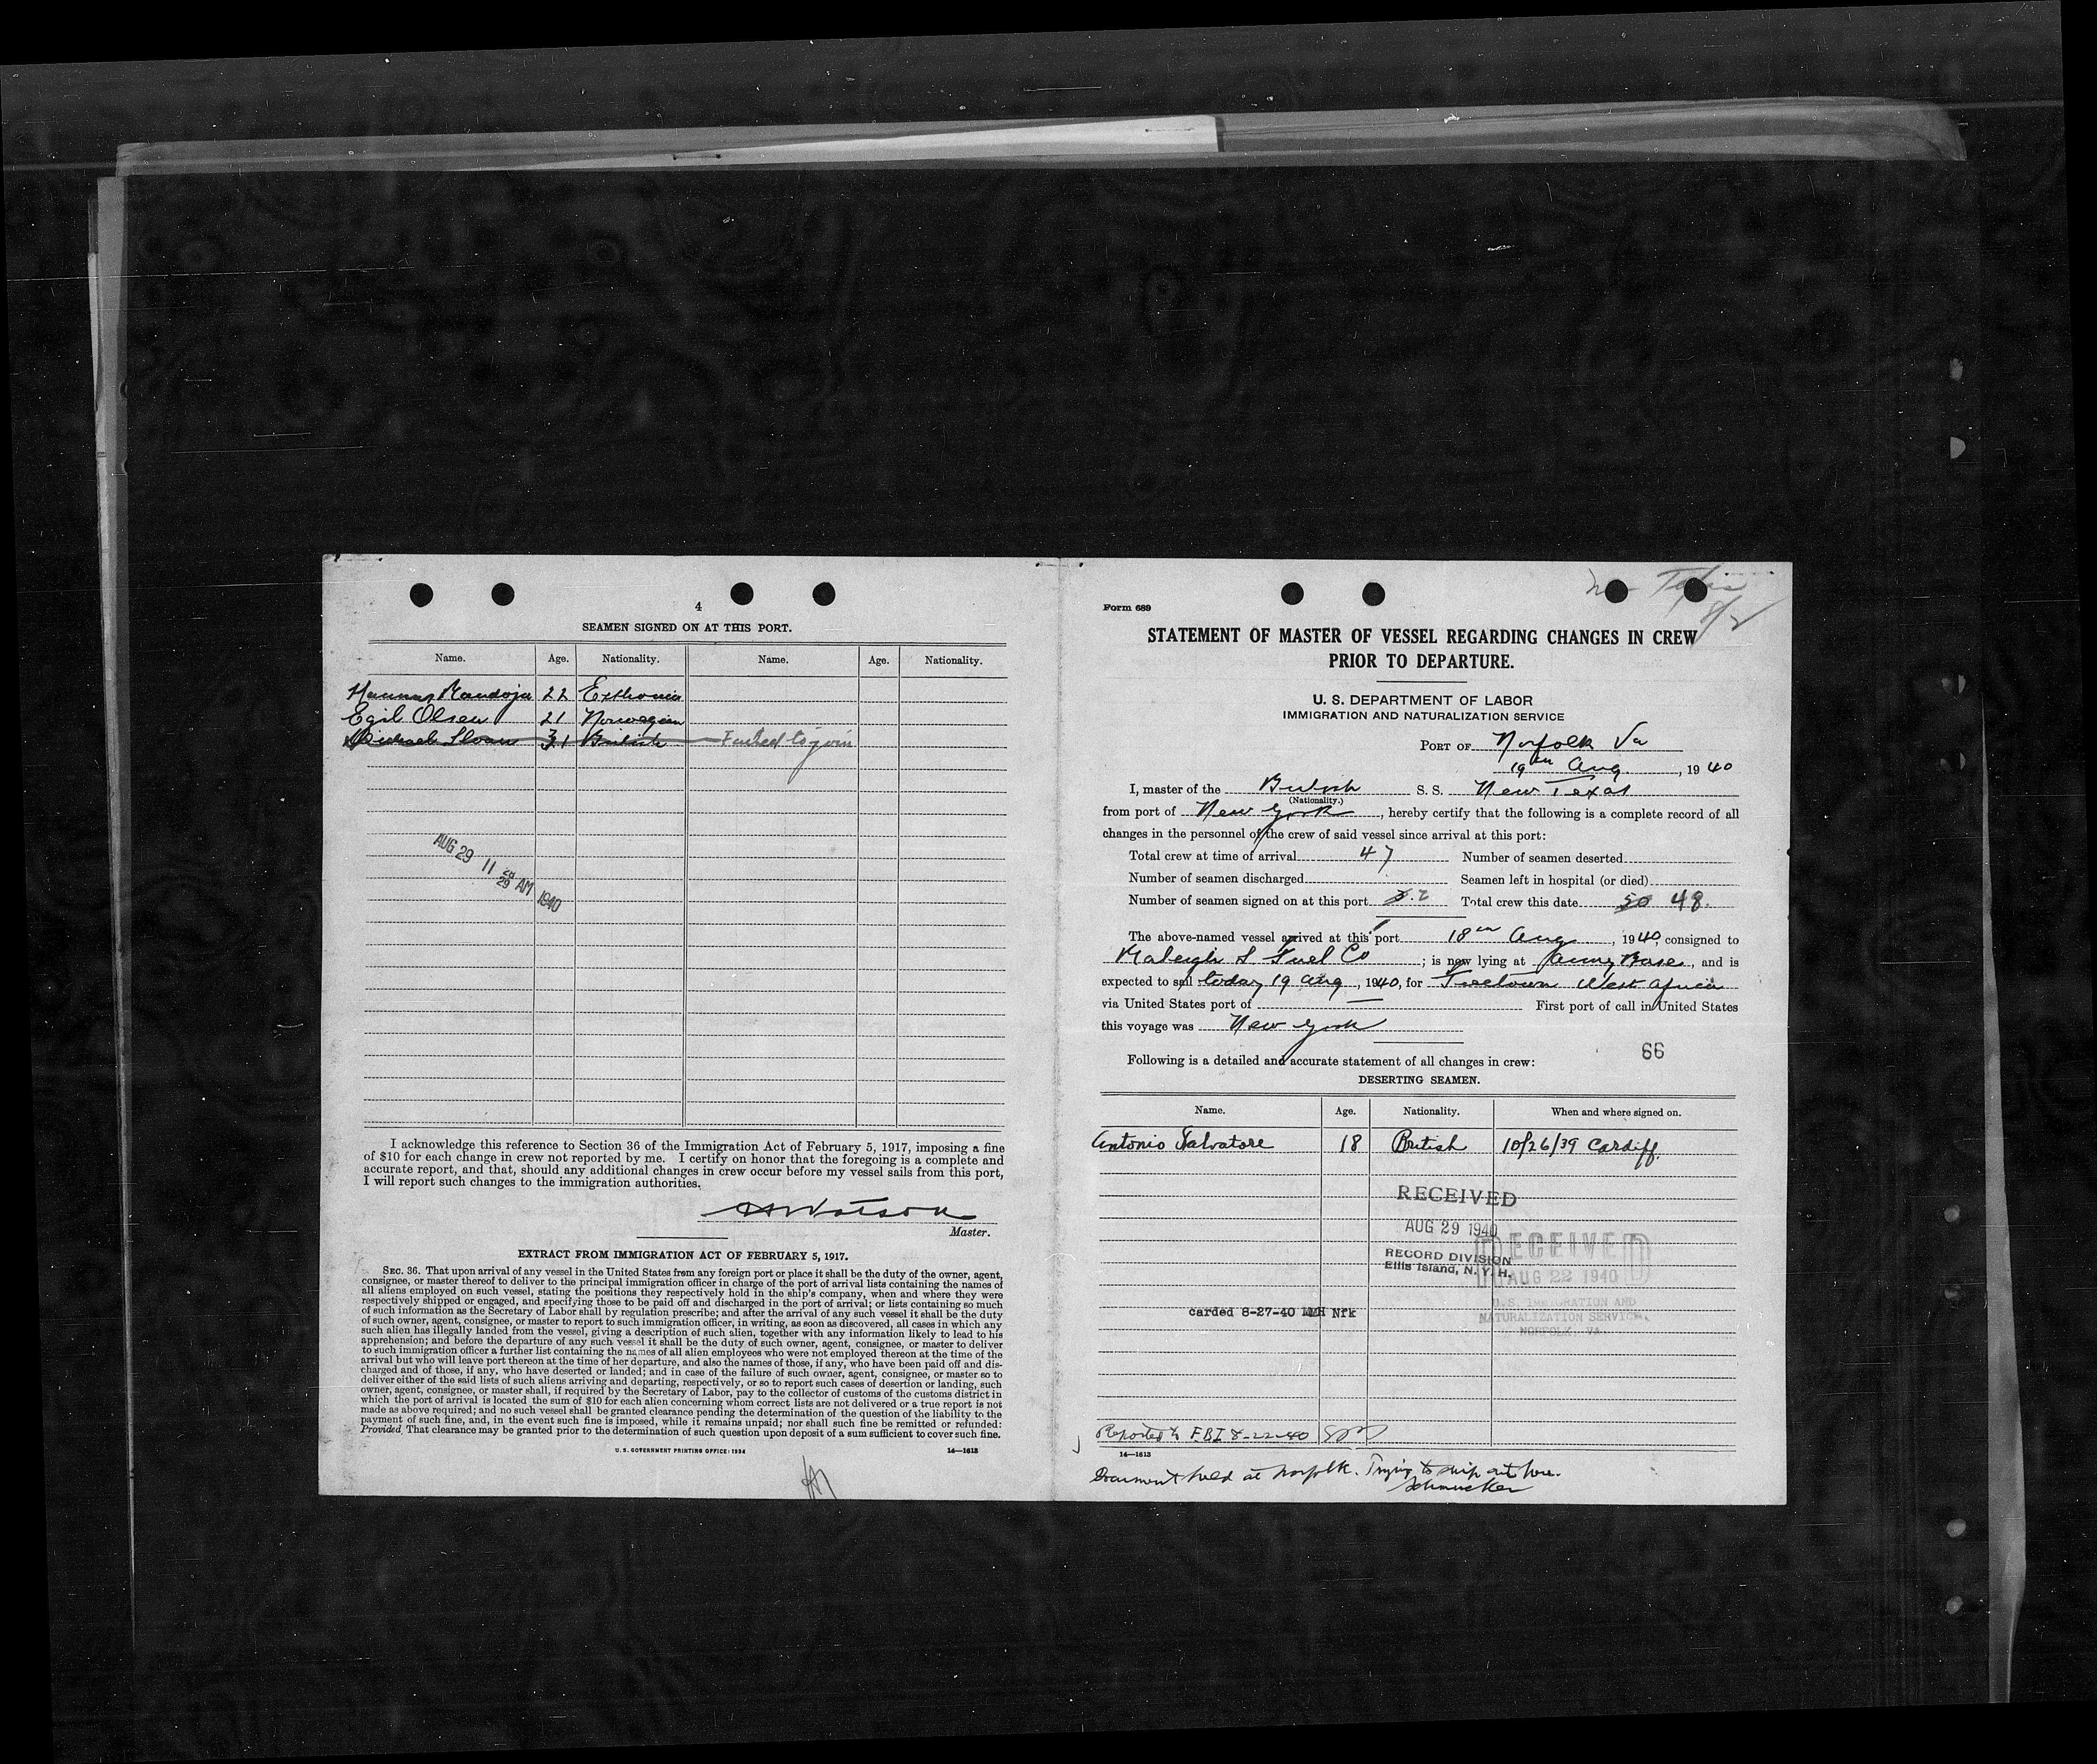 4
SEAMEN SIGNED ON AT THIS PORT.
Name. Age. Nationality. Name. Age. Nationality.
22 Esthonia
Egil Olsen 21 Norwegian
Michael Sloan 31 British Failed to join
AUG 29 11 28 29 AM 1940
I acknowledge this reference to Section 36 of the Immigration Act of February 5, 1917, imposing a fine
of $10 for each change in crew not reported by me. I certify on honor that the foregoing is a complete and
accurate report, and that, should any additional changes in crew occur before my vessel sails from this port,
I will report such changes to the immigration authorities.
Watson
Master.
EXTRACT FROM IMMIGRATION ACT OF FEBRUARY 5, 1917.
SEC. 36. That upon arrival of any vessel in the United States from any foreign port or place it shall be the duty of the owner, agent,
consignee, or master thereof to deliver to the principal immigration officer in charge of the port of arrival lists containing the names of
all aliens employed on such vessel, stating the positions they respectively hold in the ship's company, when and where they were
respectively shipped or engaged, and specifying those to be paid off and discharged in the port of arrival; or lists containing so much
of such information as the Secretary of Labor shall by regulation prescribe; and after the arrival of any such vessel it shall be the duty
of such owner, agent, consignee, or master to report to such immigration officer, in writing, as soon as discovered, all cases in which any
such alien has illegally landed from the vessel, giving a description of such alien, together with any information likely to lead to his
apprehension; and before the departure of any such vessel it shall be the duty of such owner, agent, consignee, or master to deliver
to such immigration officer a further list containing the names of all alien employees who were not employed thereon at the time of the
arrival but who will leave port thereon at the time of her departure, and also the names of those, if any, who have been paid off and dis-
charged and of those, if any, who have deserted or landed; and in case of the failure of such owner, agent, consignee, or master so to
deliver either of the said lists of such aliens arriving and departing, respectively, or so to report such cases of desertion or landing, such
owner, agent, consignee, or master shall, if required by the Secretary of Labor, pay to the collector of customs of the customs district in
which the port of arrival is located the sum of $10 for each alien concerning whom correct lists are not delivered or a true report is not
made as above required; and no such vessel shall be granted clearance pending the determination of the question of the liability to the
payment of such fine, and, in the event such fine is imposed, while it remains unpaid; nor shall such fine be remitted or refunded:
Provided, That clearance may be granted prior to the determination of such question upon deposit of a sum sufficient to cover such fine.
U. S. GOVERNMENT PRINTING OFFICE: 1934 14—1613
Form 689
STATEMENT OF MASTER OF VESSEL REGARDING CHANGES IN CREW
PRIOR TO DEPARTURE.
U. S. DEPARTMENT OF LABOR
IMMIGRATION AND NATURALIZATION SERVICE
PORT OF Norfolk Va
19th Aug., 1940
I, master of the British S. S. New Texas
(Nationality.)
from port of New York, hereby certify that the following is a complete record of all
changes in the personnel of the crew of said vessel since arrival at this port:
Total crew at time of arrival 47 Number of seamen deserted
Number of seamen discharged Seamen left in hospital (or died)
Number of seamen signed on at this port 3. 2 Total crew this date 50 48.
The above-named vessel arrived at this port 18th Aug, 1940, consigned to
Raleigh S Fuel Co; is now lying at Army Base, and is
expected to sail today 19 Aug, 1940, for Freetown West Africa
via United States port of — First port of call in United States
this voyage was New York
66
Following is a detailed and accurate statement of all changes in crew:
DESERTING SEAMEN.
Name. Age. Nationality. When and where signed on.
Antonio Salvatore 18 British 10/26/39 Cardiff.
RECEIVED
AUG 29 1940
RECORD DIVISION
Ellis Island, N. Y. H.
RECEIVED
AUG 22 1940
U.S. IMMIGRATION AND
NATURALIZATION SERVICE,
NORFOLK, VA.
carded 8-27-40 MMH Nfk
Reported to FBI 8-22-40
14—1613
Document held at Norfolk. Trying to ship out here.
Schmucker